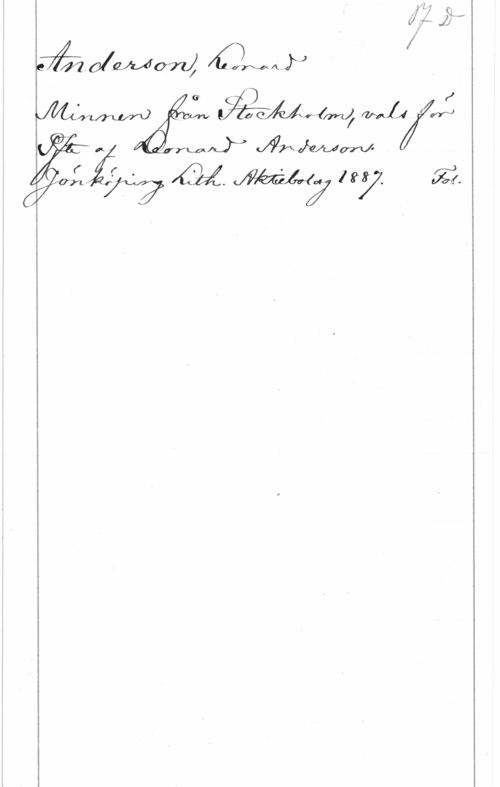 17 D
Anderson, Leonard
Minnen från Stockholm, vals för
Pfte af Leonard Anderson.
Jönköping Lith. Aktiebolag 1887. Fol.